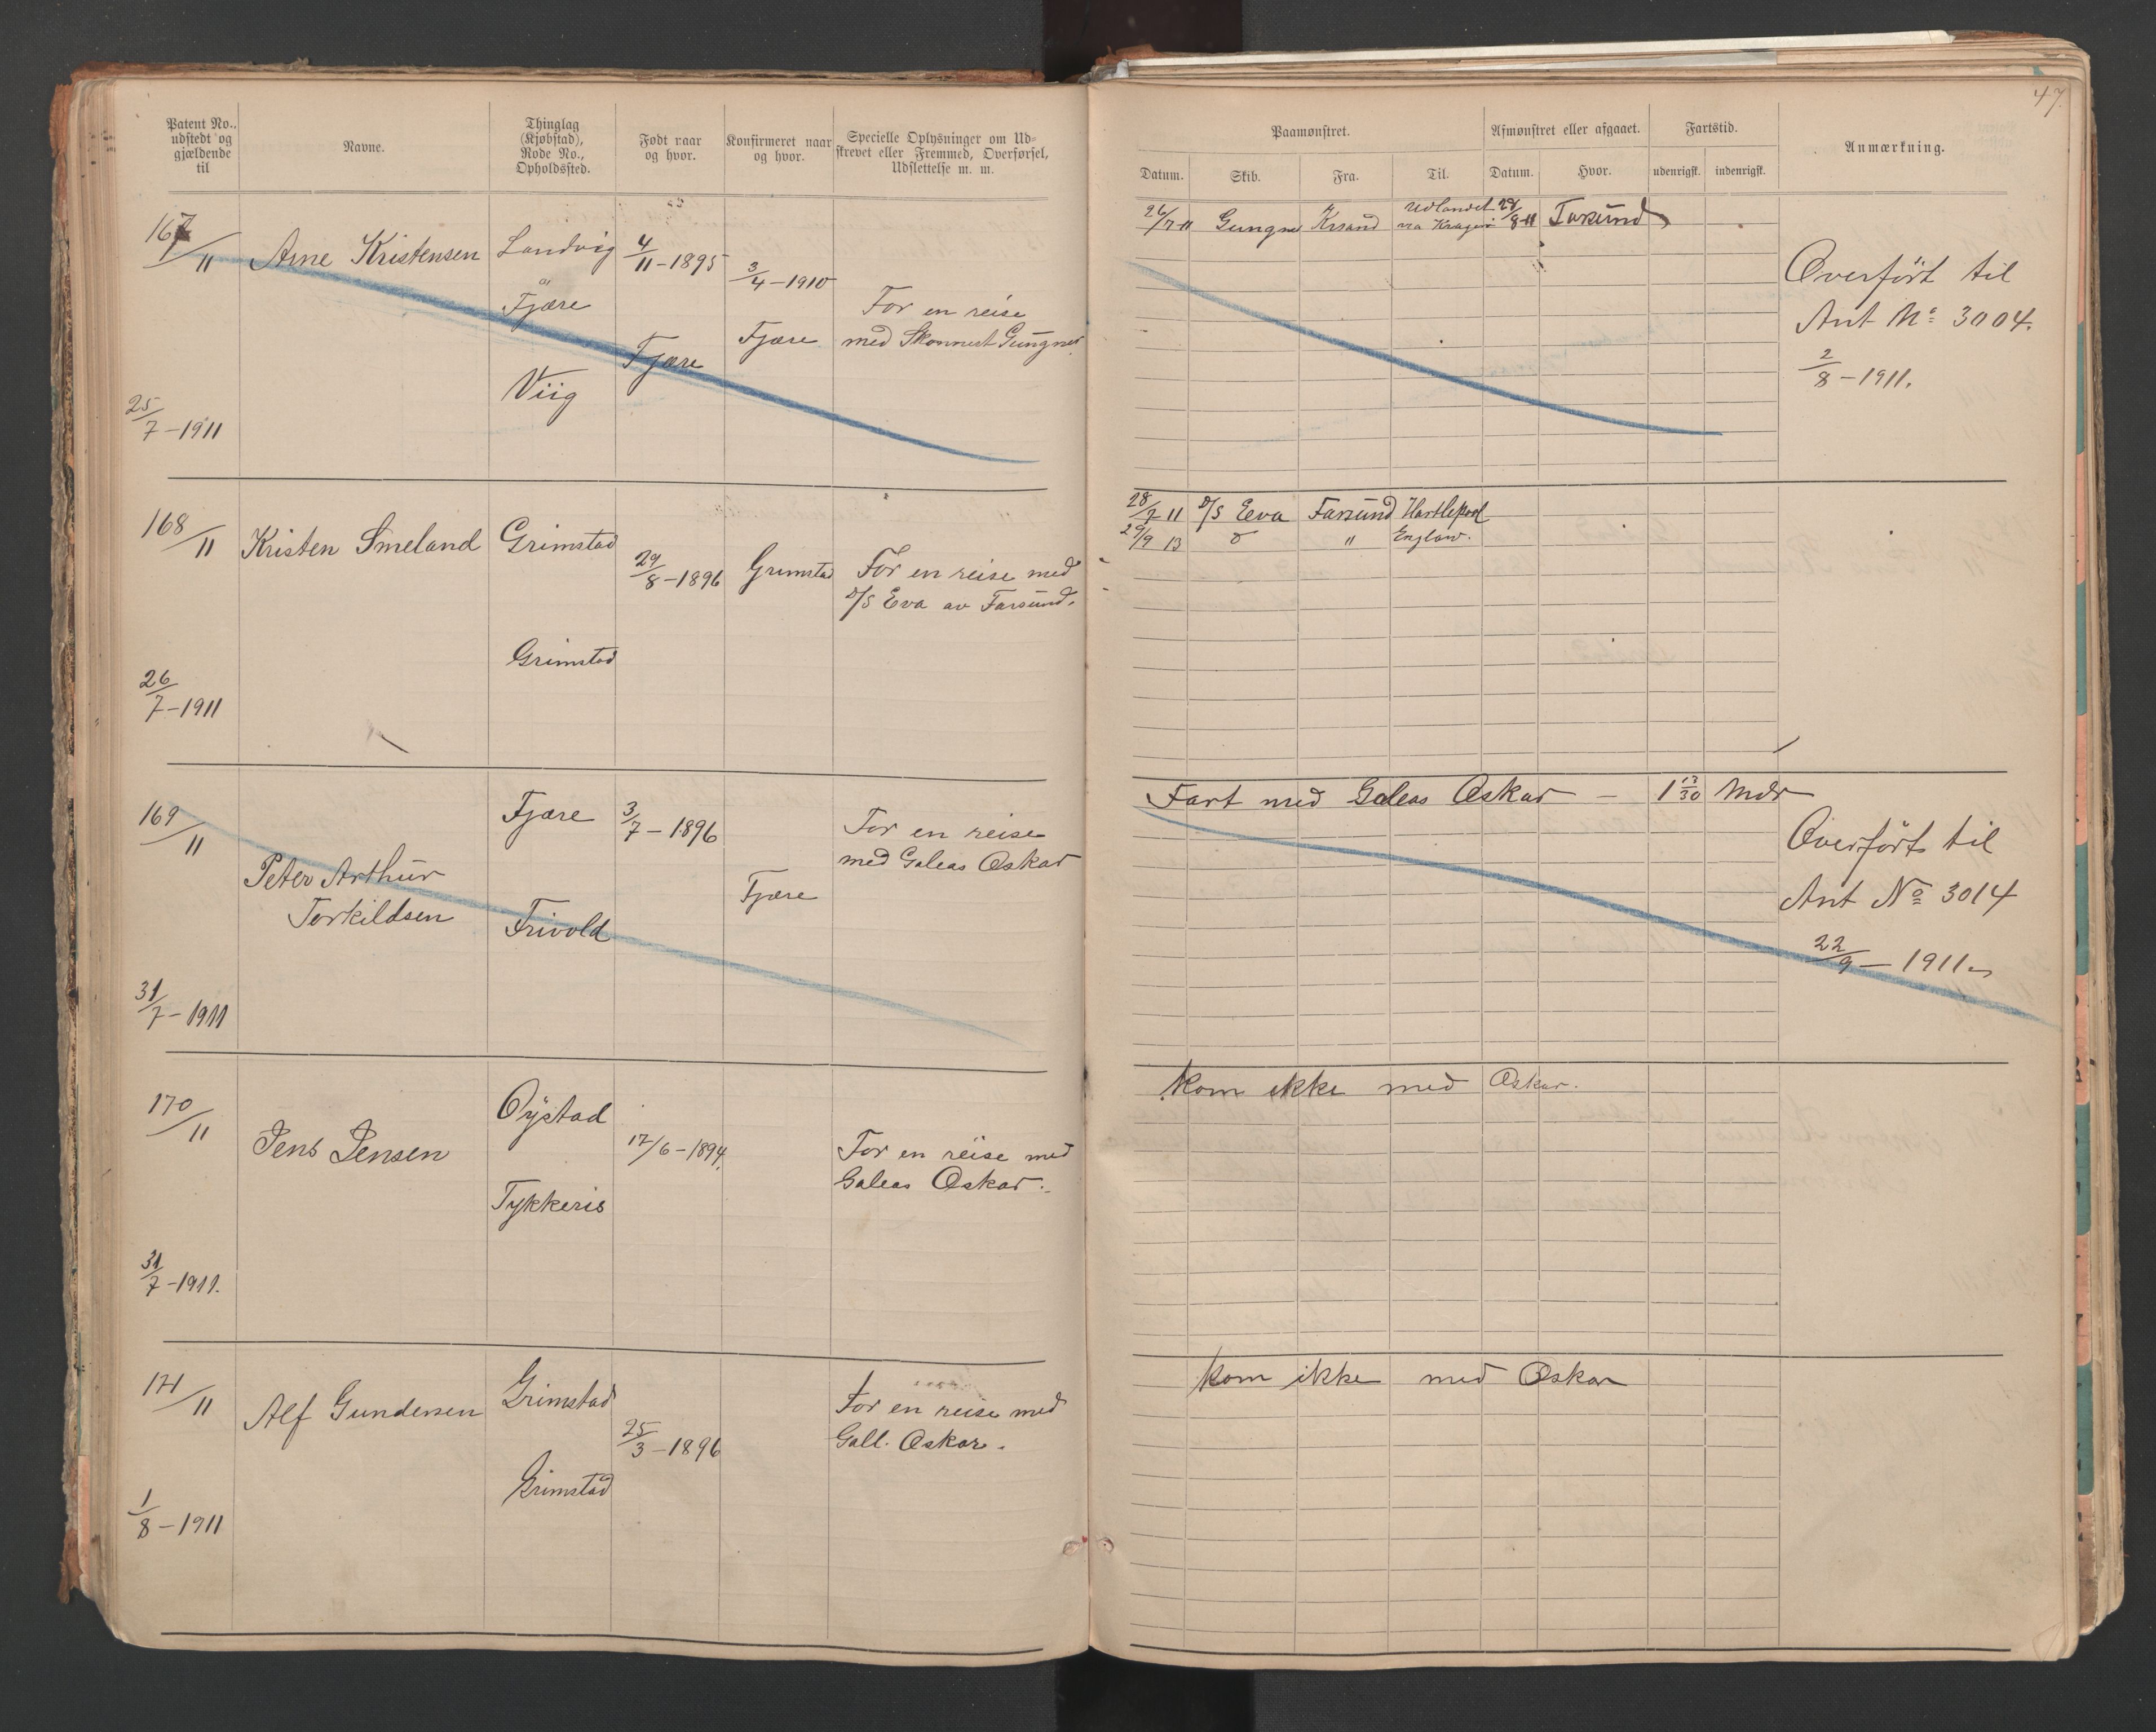 47.
Patent No., udstedt og gjældende til
Navne.
Thinglag (Kjøbstad), Rode No., Opholdssted.
Født naar og hvor.
Konfirmeret naar og hvor.
Specielle Oplysninger om Udskrevet eller Fremmed, Overførsel, Udslettelse m. m.
Paamønstret.
Afmønstret eller afgaaet.
Fartstid.
Anmærkning.
Datum.
Skib.
Fra.
Til.
Datum.
Hvor.
udenrigsk.
indenrigsk.
167/11
Arne Kristensen
Landvig
Fjære
Viig
4/11-1895
Fjære
3/4-1910
Fjære
For en reise
med Skonnert Gungner
25/7-1911
26/7-11 Gungner Krsand Udlandet
via Kragerø
Overført til
Ant No 3004.
2/8-1911.
168/11
Kristen Smeland
Grimstad
Grimstad
29/8-1896
Grimstad
For en reise med
D/S Eva av Farsund.
26/7-1911
28/7 11 D/S Eva Farsund Hartlepool
29/9 13 " Englan.
169/11
Peter Arthur
Terkildsen
Fjære
Frivold
3/7-1896
Fjære
For en reise
med Galeas Oskar
31/7-1911
Fart med Galeas Oskar — 1 13/30 Mdr
Overført til
Ant No 3014
22/9-1911
170/11
Jens Jensen
Øystad
Tykkeris
17/6-1894.
For en reise med
Galeas Oskar.
31/7-1911.
Kom ikke med Oskar.
171/11
Alf Gundersen
Grimstad
Grimstad
25/3-1896
For en reise med
Gall. Oskar.
1/8-1911
Kom ikke med Oskar